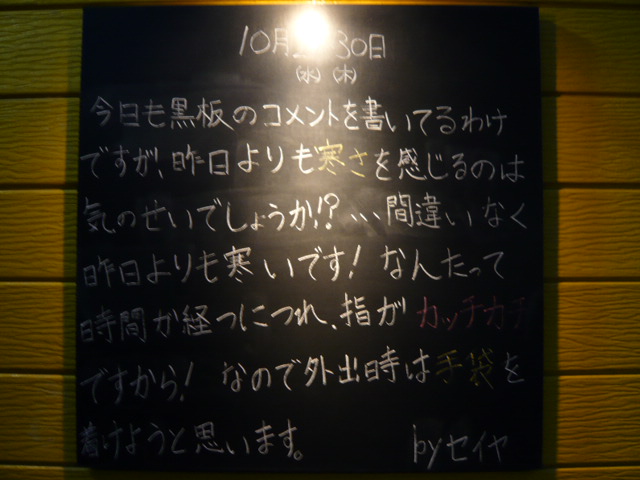 10月 30日
(水) (木)
今日も黒板のコメントを書いてるわけ
ですが、昨日よりも寒さを感じるのは
気のせいでしょうか!?…間違いなく
昨日よりも寒いです!なんたって
時間が経つにつれ、指がカッチカチ
ですから!なので外出時は手袋を
着けようと思います。 byセイヤ